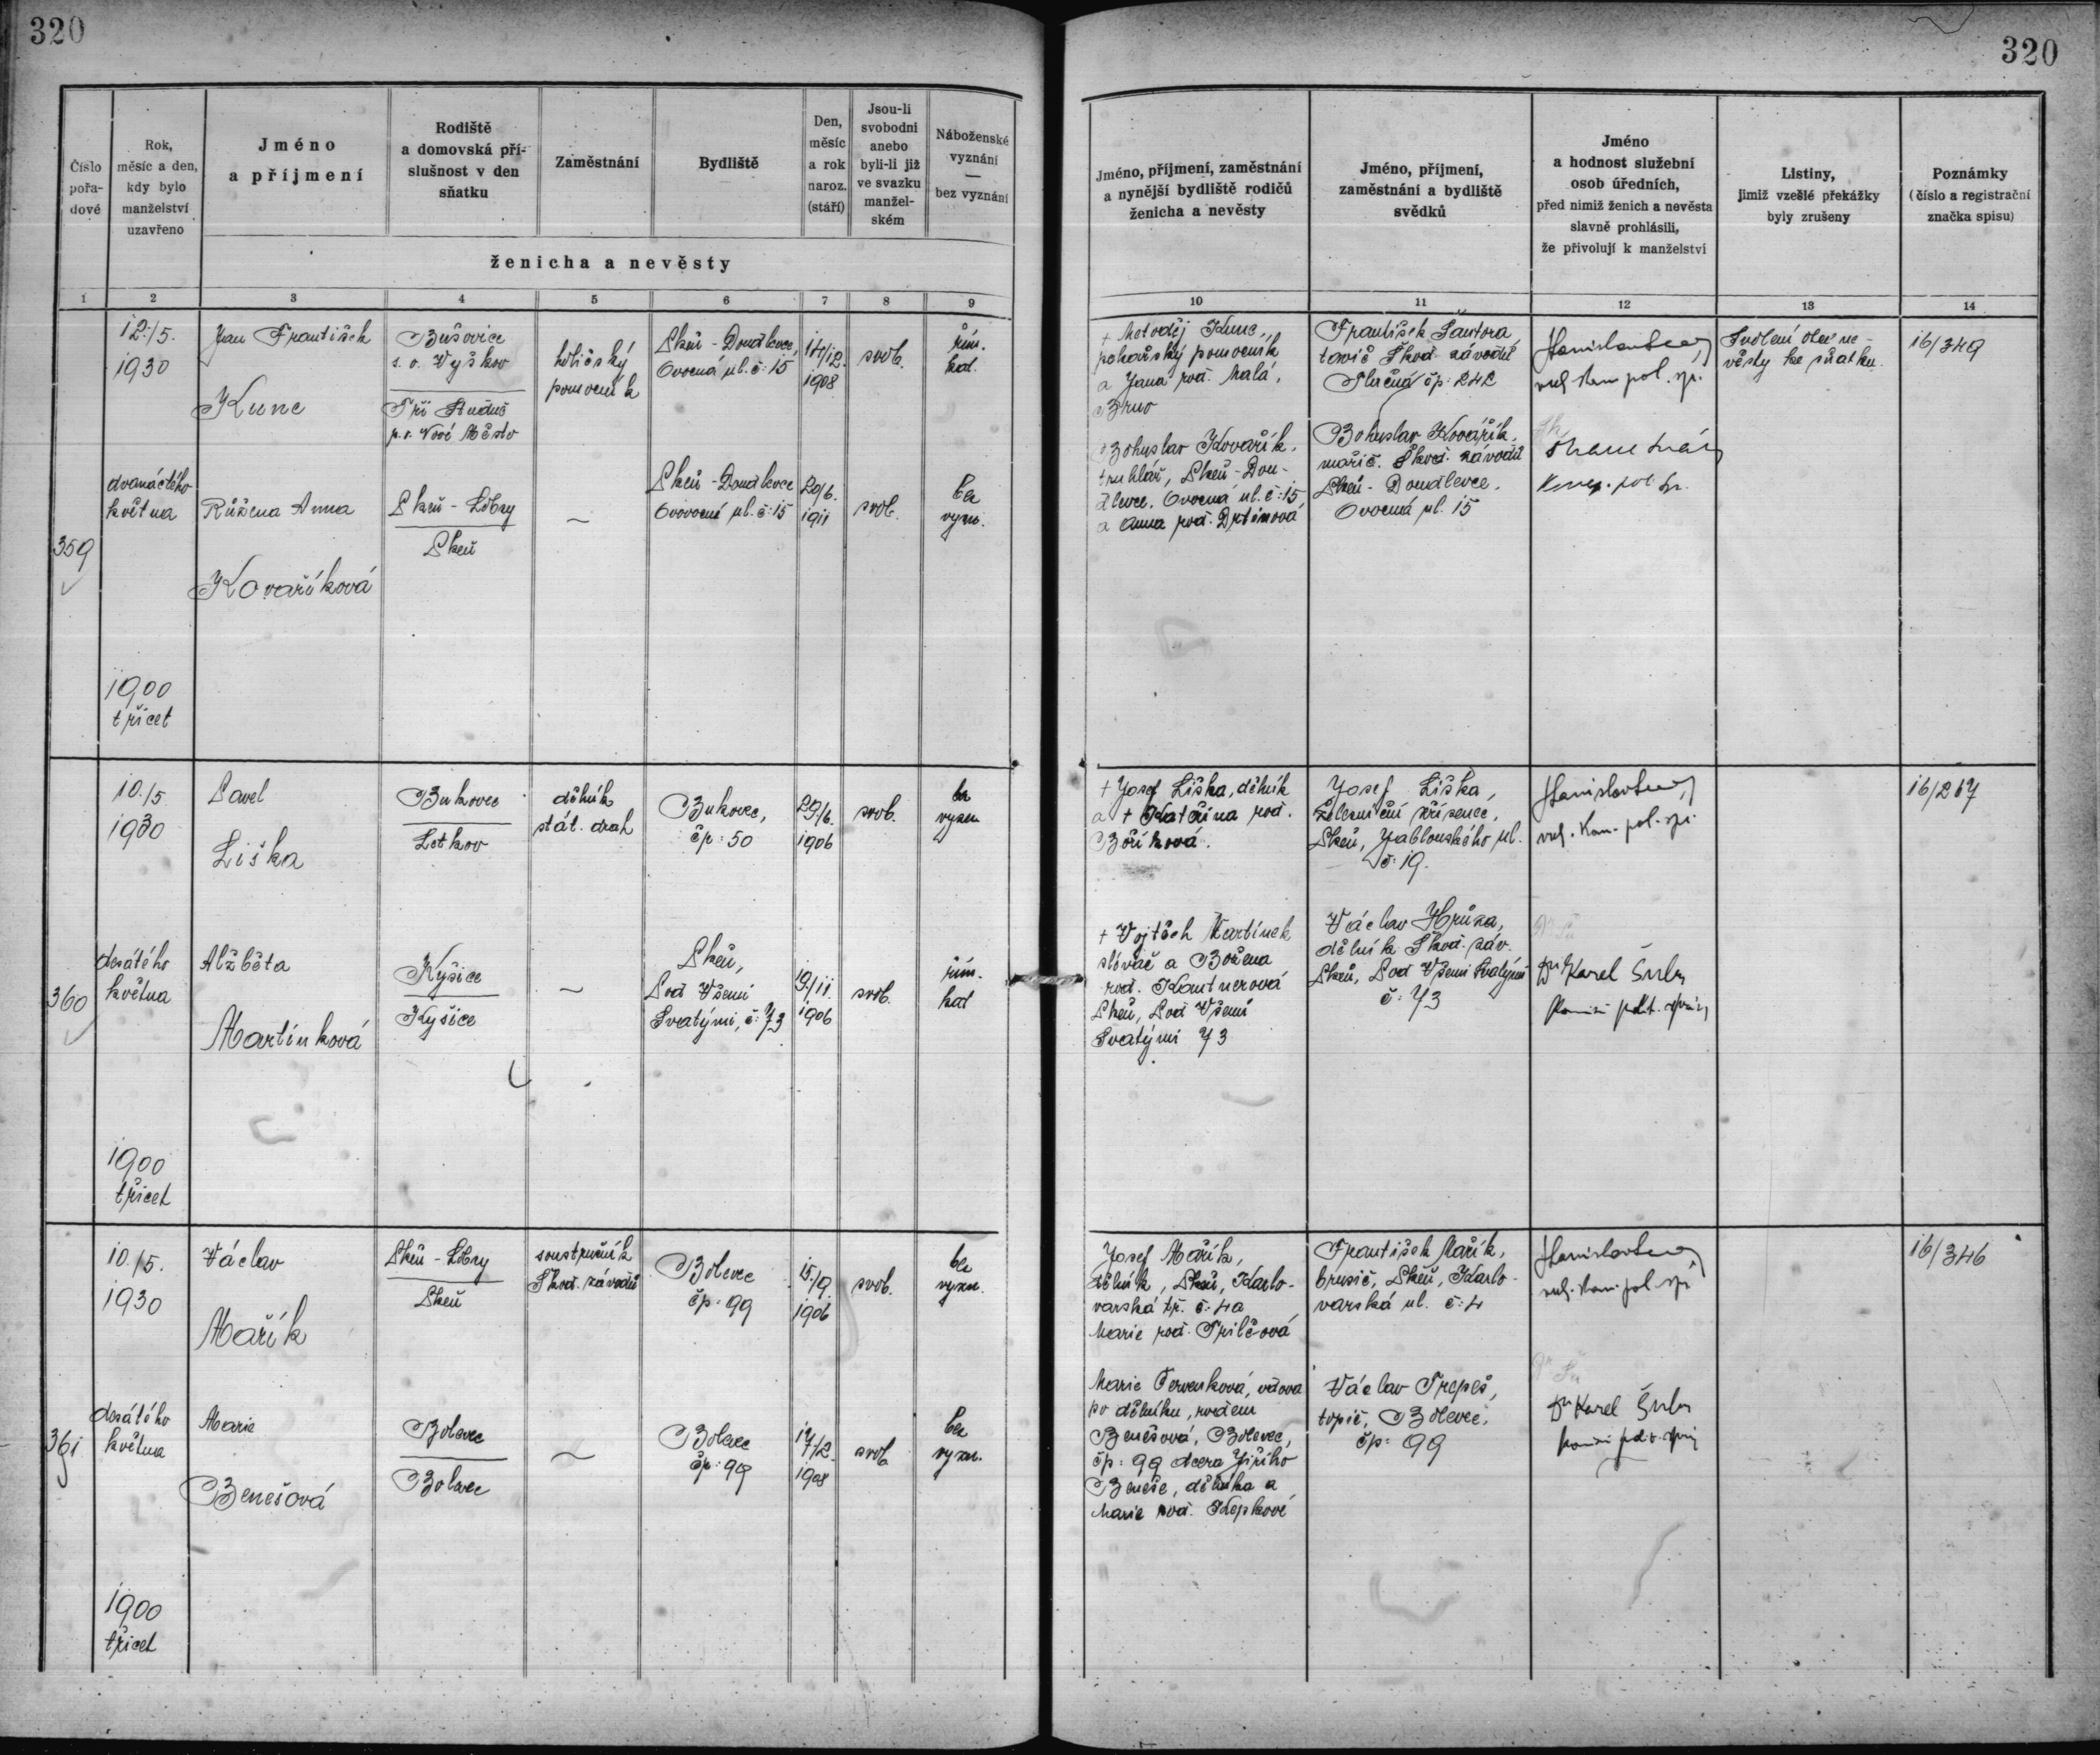 320
320
Číslo
pořa-
dové
Rok,
měsíc a den,
kdy bylo
manželství
uzavřeno
Jméno
a příjmení
Rodiště
a domovská pří-
slušnost v den
sňatku
Zaměstnání
Bydliště
Den,
měsíc
a rok
naroz.
(stáří)
Jsou-li
svobodni
anebo
byli-li již
ve svazku
manžel-
ském
Náboženské
vyznání
—
bez vyznání
ženicha a nevěsty
Jméno, příjmení, zaměstnání
a nynější bydliště rodičů
ženicha a nevěsty
Jméno, příjmení,
zaměstnání a bydliště
svědků
Jméno
a hodnost služební
osob úředních,
před nimiž ženich a nevěsta
slavně prohlásili,
že přivolují k manželství
Listiny,
jimiž vzešlé překážky
byly zrušeny
Poznámky
(číslo a registrační
značka spisu)
1 2 3 4 5 6 7 8 9
10 11 12 13 14
359
12./5.
1930
dvanáctého
května
1900
třicet
Jan František
Kunc
Růžena Anna
Kovaříková
s. o. Vyškov
Tři Studně
p. o. Nové Město
Plzeň - Lobzy
Plzeň
holičský
pomocník
—
Plzeň - Doudlevce,
Ovocná ul. č: 15
Plzeň - Doudlevce
Ovocná ul. č: 15
14/12.
1908
20/6.
1911
svob.
svob.
řím.
kat.
bez
vyzn.
+ Metoděj Kunc,
pekařský pomocník
a Jana roz. Malá,
Brno
Bohuslav Kovařík,
truhlář, Plzeň - Dou-
dlevce, Ovocná ul. č: 15
a Anna roz. Drtinová
František Šantora
Škod. závodů
čp: 242
Bohuslav Kovářík,
Škod. závodů
Plzeň - Doudlevce,
Ovocná ul. 15
pol. spr.
Svolení otce ne-
věsty ke sňatku.
16/349
360
10./5.
1930
desátého
května
1900
třicet
Pavel
Liška
Alžběta
Martínková
Bukovec
Letkov
Kyšice
Kyšice
dělník
stát. drah
—
Bukovec,
čp: 50
Plzeň,
Pod Všemi
Svatými, č: 73
29/6.
1906
19/11.
1906
svob.
svob.
bez
vyzn
řím.
kat
+ Josef Liška, dělník
a + Kateřina roz.
Bőříková.
+ Vojtěch Martínek
slévač a Božena
roz. Kantnerová
Plzeň, Pod Všemi
Svatými 73
Josef Liška,
železniční zřízenec,
Plzeň, Jablonského ul.
č: 19.
Václav Hrůza,
dělník Škod. záv.
Plzeň, Pod Všemi Svatými
č: 73
kom. pol. spr.
Dr Karel
16/267
361
10./5.
1930
desátého
května
1900
třicet
Václav
Mařík
Marie
Benešová
Plzeň - Lobzy
Plzeň
Bolevec
Bolevec
soustružník
Škod. závodů
—
Bolevec
čp: 99
Bolevec
čp: 99
15./9.
1906
17/2.
1908
svob.
svob.
bez
vyzn.
bez
vyzn.
Josef Mařík,
dělník, Plzeň, Karlo-
varská tř. č: 4 a
Marie roz.
Marie Červenková, vdova
po dělníku, rozem
Benešová, Bolevec,
čp: 99 dcera Jiřího
Beneše, dělníka a
Marie roz. Kepkové
František Mařík,
brusič, Plzeň, Karlo-
varská ul. č: 4
Václav
topič, Bolevec,
čp: 99
kom. pol. spr.
Dr Karel
16/346